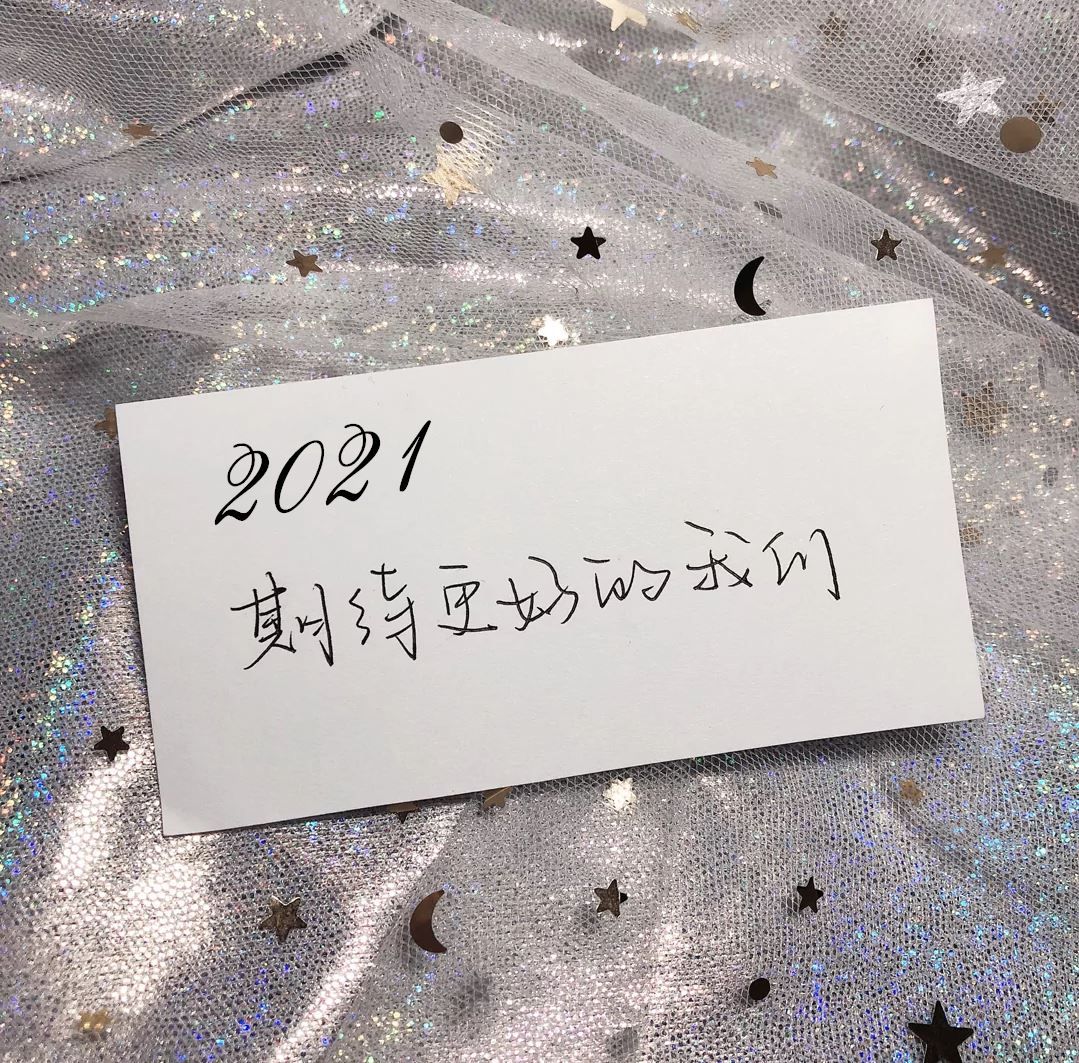 2021
期待更好的我们